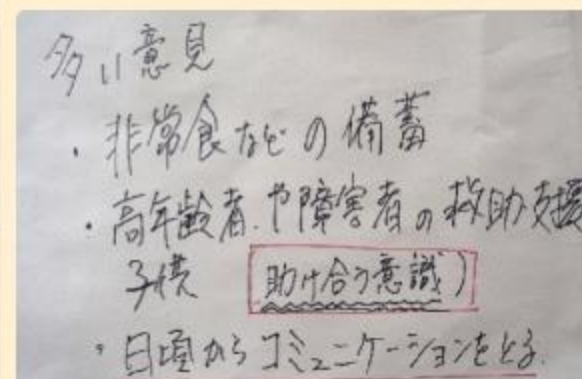 多い意見
・非常食などの備蓄
・高年齢者や障害者の救助支援
子供 助け合う意識)
・日頃からコミュニケーションをとる.